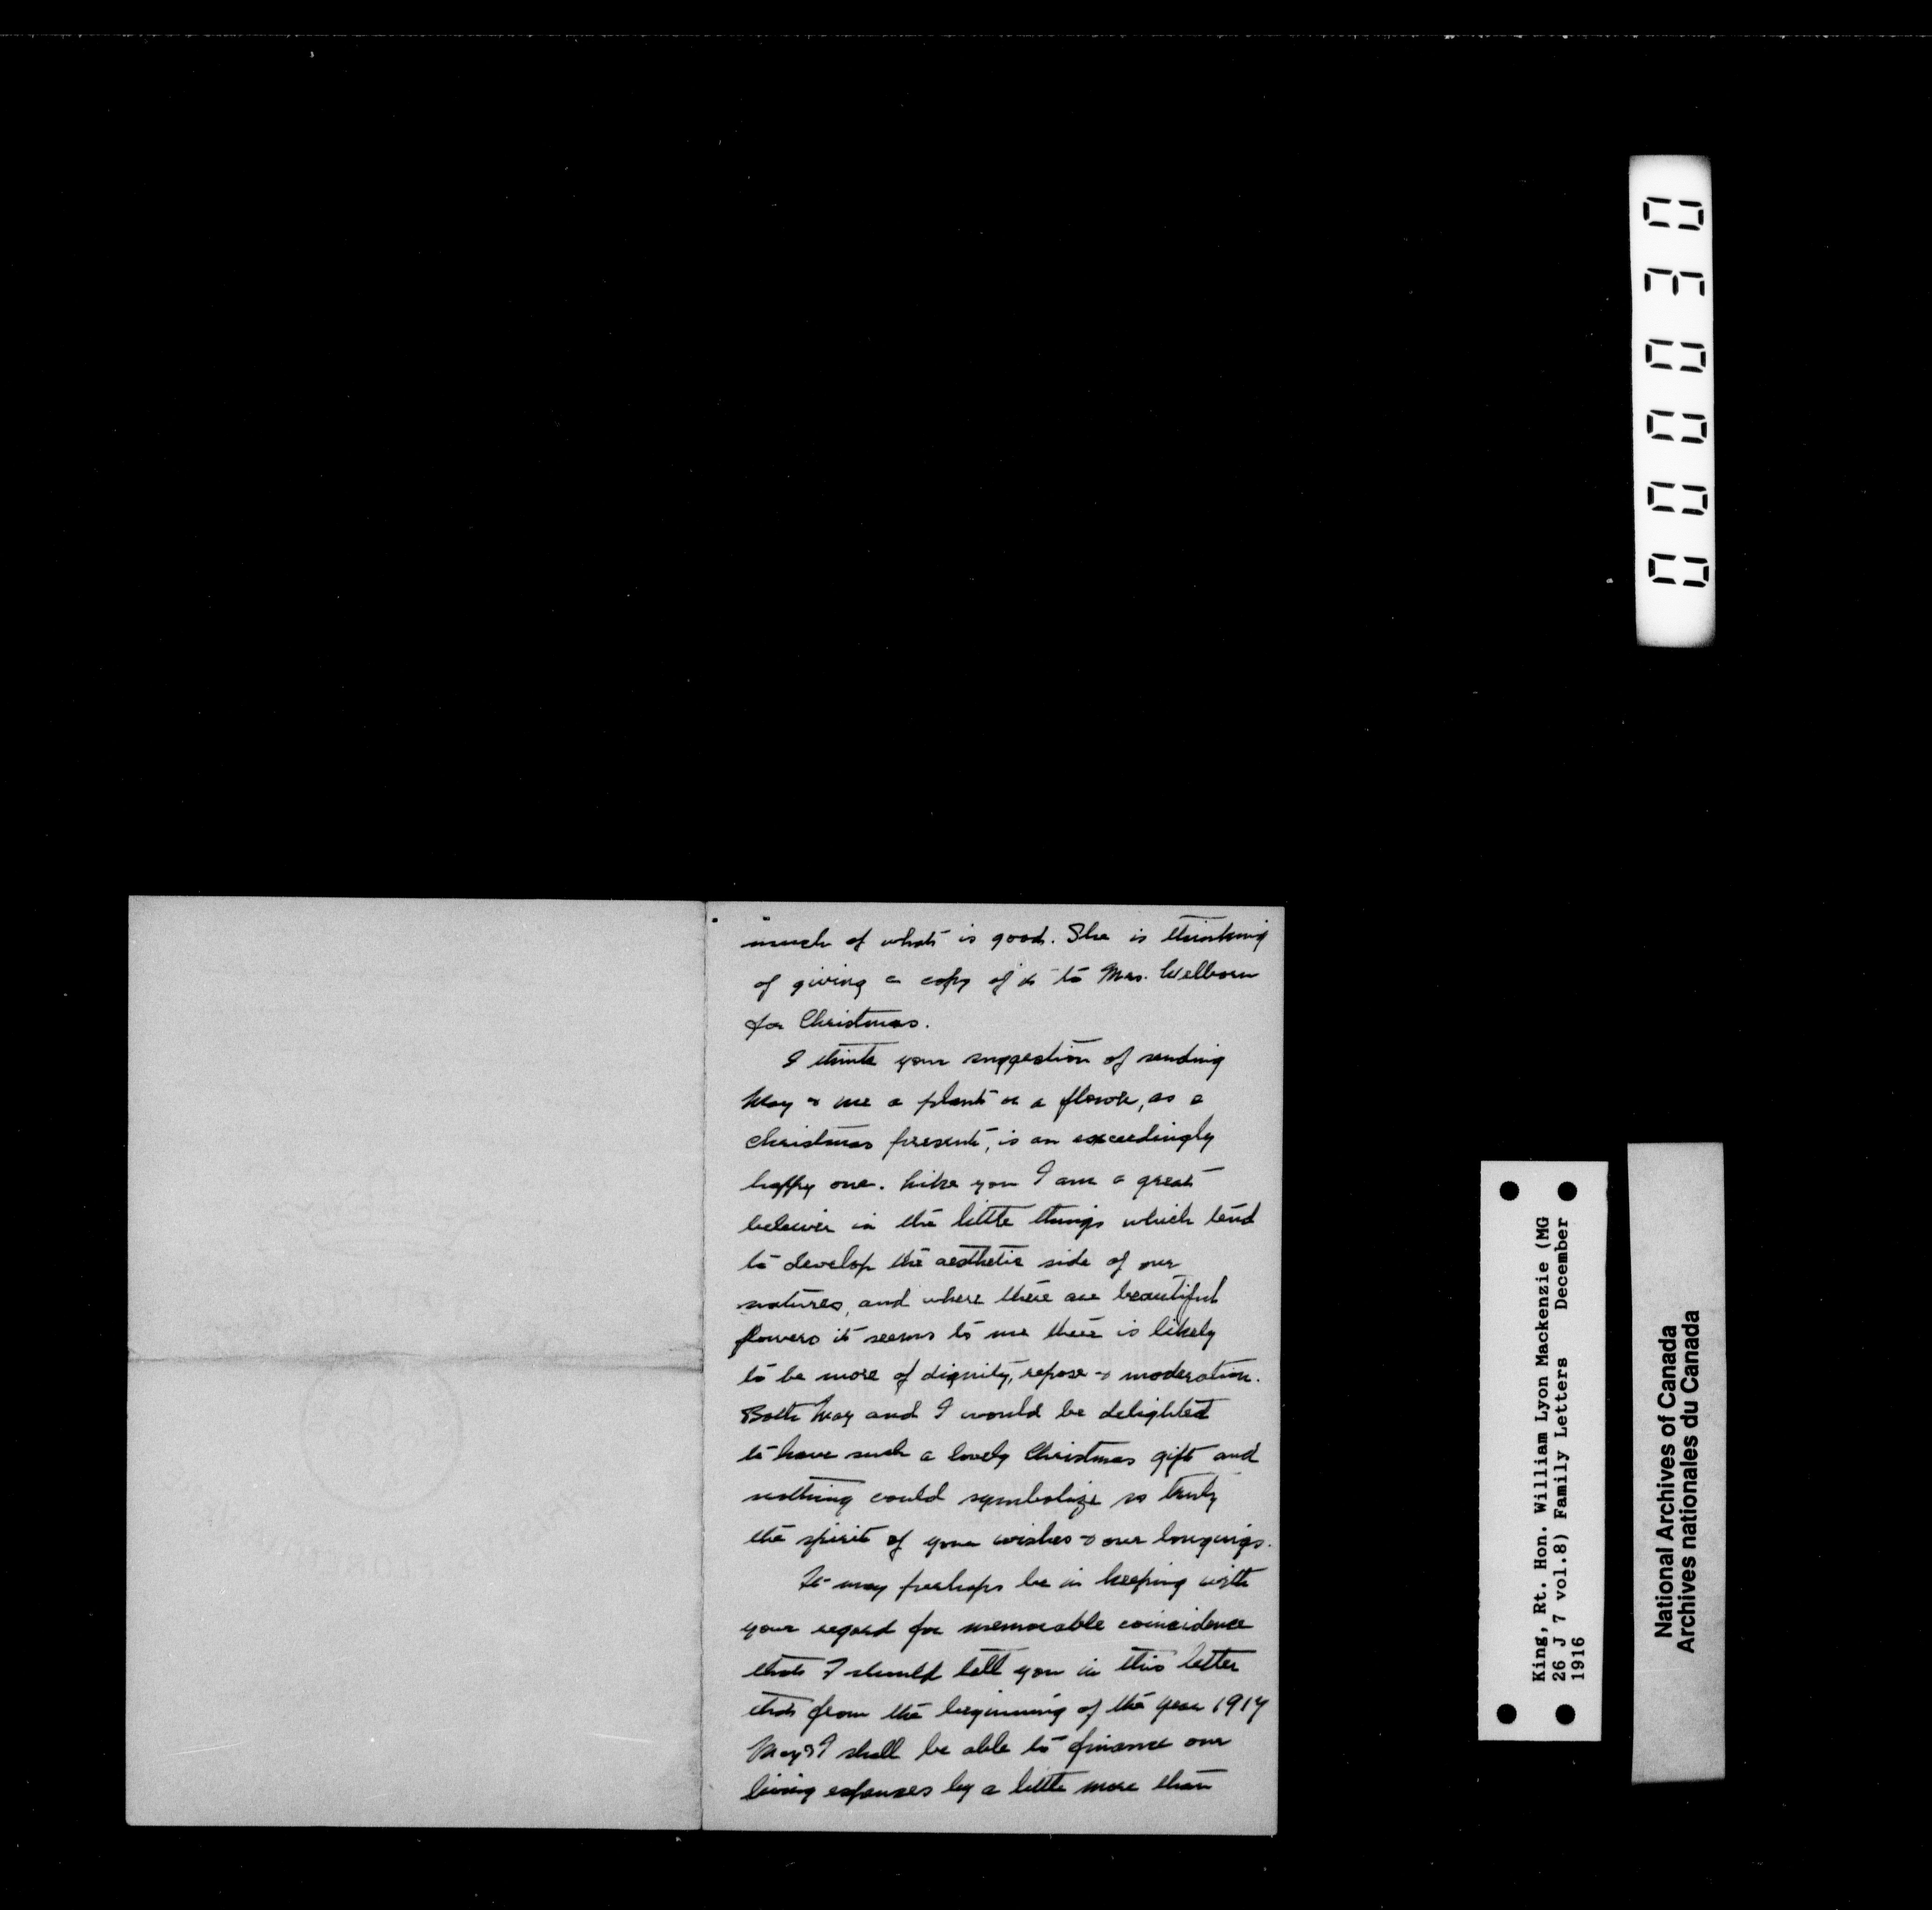 much of what is good. She is thinking
of giving a copy of it to Mrs. Welborn
for Christmas.
I think your suggestion of sending
May & me a plant or a flower, as a
christmas present, is an exceedingly
happy one. Like you I am a great
believer in the little things which tend
to develop the aesthetic side of our
natures, and where there are beautiful
flowers it seems to me there is likely
to be more of dignity, repose & moderation.
Both May and I would be delighted
to have such a lovely Christmas gift and
nothing could symbolize so truly
the spirit of your wishes & our longings.
It may perhaps be in keeping with
your regard for memorable coincidence
that I should tell you in this letter
that from the beginning of the year 1917
May & I shall be able to finance our
living expenses by a little more than
000030
King, Rt. Hon. William Lyon Mackenzie (MG
26 J 7 vol.8) Family Letters December
1916
National Archives of Canada
Archives nationales du Canada